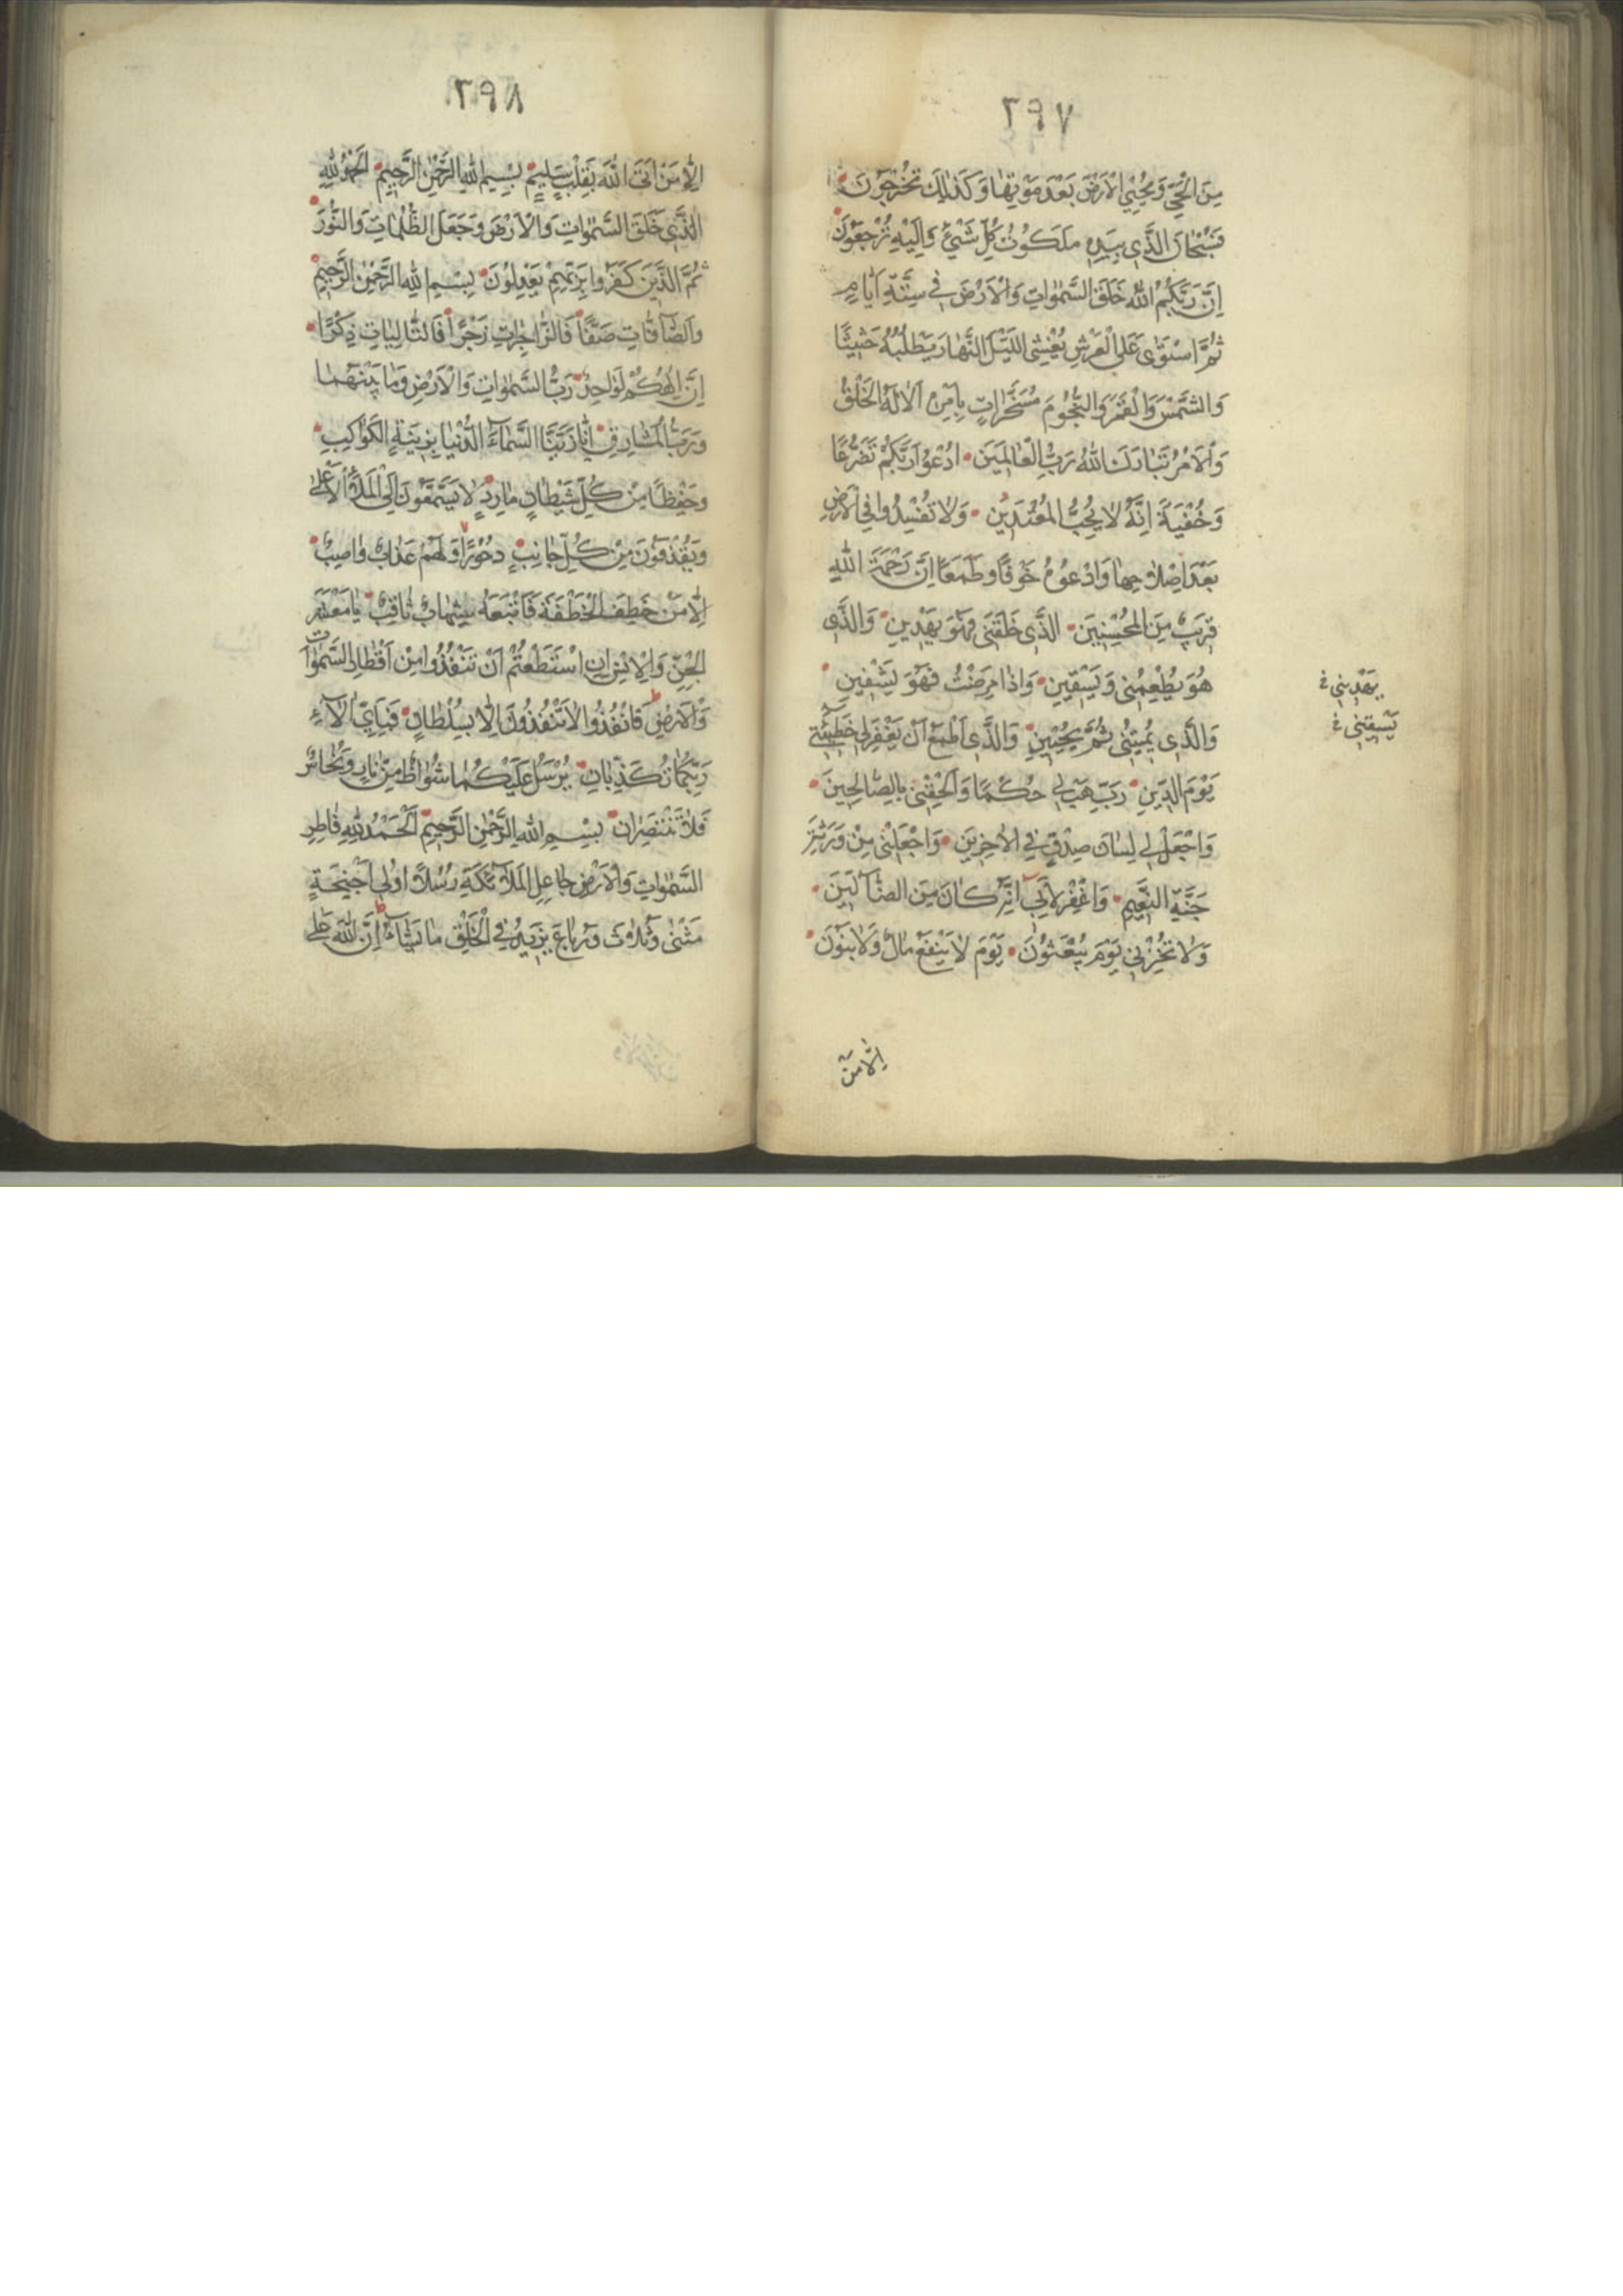 ٢٩٧
مِنَ الْحَيِّ وَيُحْيِي الْاَرْضَ بَعْدَ مَوْتِهَا وَكَذٰلِكَ تُخْرَجُونَ
فَسُبْحَانَ الَّذِي بِيَدِهِ مَلَكُوتُ كُلِّ شَيْءٍ وَاِلَيْهِ تُرْجَعُونَ
اِنَّ رَبَّكُمُ اللّٰهُ خَلَقَ السَّمٰوَاتِ وَالْاَرْضَ فِي سِتَّةِ اَيَّامٍ
ثُمَّ اسْتَوٰى عَلَى الْعَرْشِ يُغْشِى اللَّيْلَ النَّهَارَ يَطْلُبُهُ حَثِيثًا
وَالشَّمْسَ وَالْقَمَرَ وَالنُّجُومَ مُسَخَّرَاتٍ بِاَمْرِهِ اَلَا لَهُ الْخَلْقُ
وَالْاَمْرُ تَبَارَكَ اللّٰهُ رَبُّ الْعَالَمِينَ اُدْعُوا رَبَّكُمْ تَضَرُّعًا
وَخُفْيَةً اِنَّهُ لَا يُحِبُّ الْمُعْتَدِينَ وَلَا تُفْسِدُوا فِي الْاَرْضِ
بَعْدَ اِصْلَاحِهَا وَادْعُوهُ خَوْفًا وَطَمَعًا اِنَّ رَحْمَةَ اللّٰهِ
قَرِيبٌ مِنَ الْمُحْسِنِينَ الَّذِي خَلَقَنِي فَهُوَ يَهْدِينِ وَالَّذِي
هُوَ يُطْعِمُنِي وَيَسْقِينِ وَاِذَا مَرِضْتُ فَهُوَ يَشْفِينِ
يَهْدِينِي خ
يَسْقِينِي خ
وَالَّذِي يُمِيتُنِي ثُمَّ يُحْيِينِ وَالَّذِي اَطْمَعُ اَنْ يَغْفِرَ لِي خَطِيئَتِي
يَوْمَ الدِّينِ رَبِّ هَبْ لِي حُكْمًا وَاَلْحِقْنِي بِالصَّالِحِينَ
وَاجْعَلْ لِي لِسَانَ صِدْقٍ فِي الْاٰخِرِينَ وَاجْعَلْنِي مِنْ وَرَثَةِ
جَنَّةِ النَّعِيمِ وَاغْفِرْ لِاَبِي اِنَّهُ كَانَ مِنَ الضَّالِّينَ
وَلَا تُخْزِنِي يَوْمَ يُبْعَثُونَ يَوْمَ لَا يَنْفَعُ مَالٌ وَلَا بَنُونَ
اِلَّا مَنْ
٢٩٨
اِلَّا مَنْ اَتَى اللّٰهَ بِقَلْبٍ سَلِيمٍ بِسْمِ اللّٰهِ الرَّحْمٰنِ الرَّحِيمِ اَلْحَمْدُ لِلّٰهِ
الَّذِي خَلَقَ السَّمٰوَاتِ وَالْاَرْضَ وَجَعَلَ الظُّلُمَاتِ وَالنُّورَ
ثُمَّ الَّذِينَ كَفَرُوا بِرَبِّهِمْ يَعْدِلُونَ بِسْمِ اللّٰهِ الرَّحْمٰنِ الرَّحِيمِ
وَالصَّافَّاتِ صَفًّا فَالزَّاجِرَاتِ زَجْرًا فَالتَّالِيَاتِ ذِكْرًا
اِنَّ اِلٰهَكُمْ لَوَاحِدٌ رَبُّ السَّمٰوَاتِ وَالْاَرْضِ وَمَا بَيْنَهُمَا
وَرَبُّ الْمَشَارِقِ اِنَّا زَيَّنَّا السَّمَاءَ الدُّنْيَا بِزِينَةٍ الْكَوَاكِبِ
وَحِفْظًا مِنْ كُلِّ شَيْطَانٍ مَارِدٍ لَا يَسَّمَّعُونَ اِلَى الْمَلَاِ الْاَعْلٰى
وَيُقْذَفُونَ مِنْ كُلِّ جَانِبٍ دُحُورًا وَلَهُمْ عَذَابٌ وَاصِبٌ
اِلَّا مَنْ خَطِفَ الْخَطْفَةَ فَاَتْبَعَهُ شِهَابٌ ثَاقِبٌ يَا مَعْشَرَ
الْجِنِّ وَالْاِنْسِ اِنِ اسْتَطَعْتُمْ اَنْ تَنْفُذُوا مِنْ اَقْطَارِ السَّمٰوَاتِ
وَالْاَرْضِ فَانْفُذُوا لَا تَنْفُذُونَ اِلَّا بِسُلْطَانٍ فَبِاَيِّ اٰلَاءِ
رَبِّكُمَا تُكَذِّبَانِ يُرْسَلُ عَلَيْكُمَا شُوَاظٌ مِنْ نَارٍ وَنُحَاسٌ
فَلَا تَنْتَصِرَانِ بِسْمِ اللّٰهِ الرَّحْمٰنِ الرَّحِيمِ اَلْحَمْدُ لِلّٰهِ فَاطِرِ
السَّمٰوَاتِ وَالْاَرْضِ جَاعِلِ الْمَلٰئِكَةِ رُسُلًا اُولِي اَجْنِحَةٍ
مَثْنٰى وَثُلَاثَ وَرُبَاعَ يَزِيدُ فِي الْخَلْقِ مَا يَشَاءُ اِنَّ اللّٰهَ عَلٰى